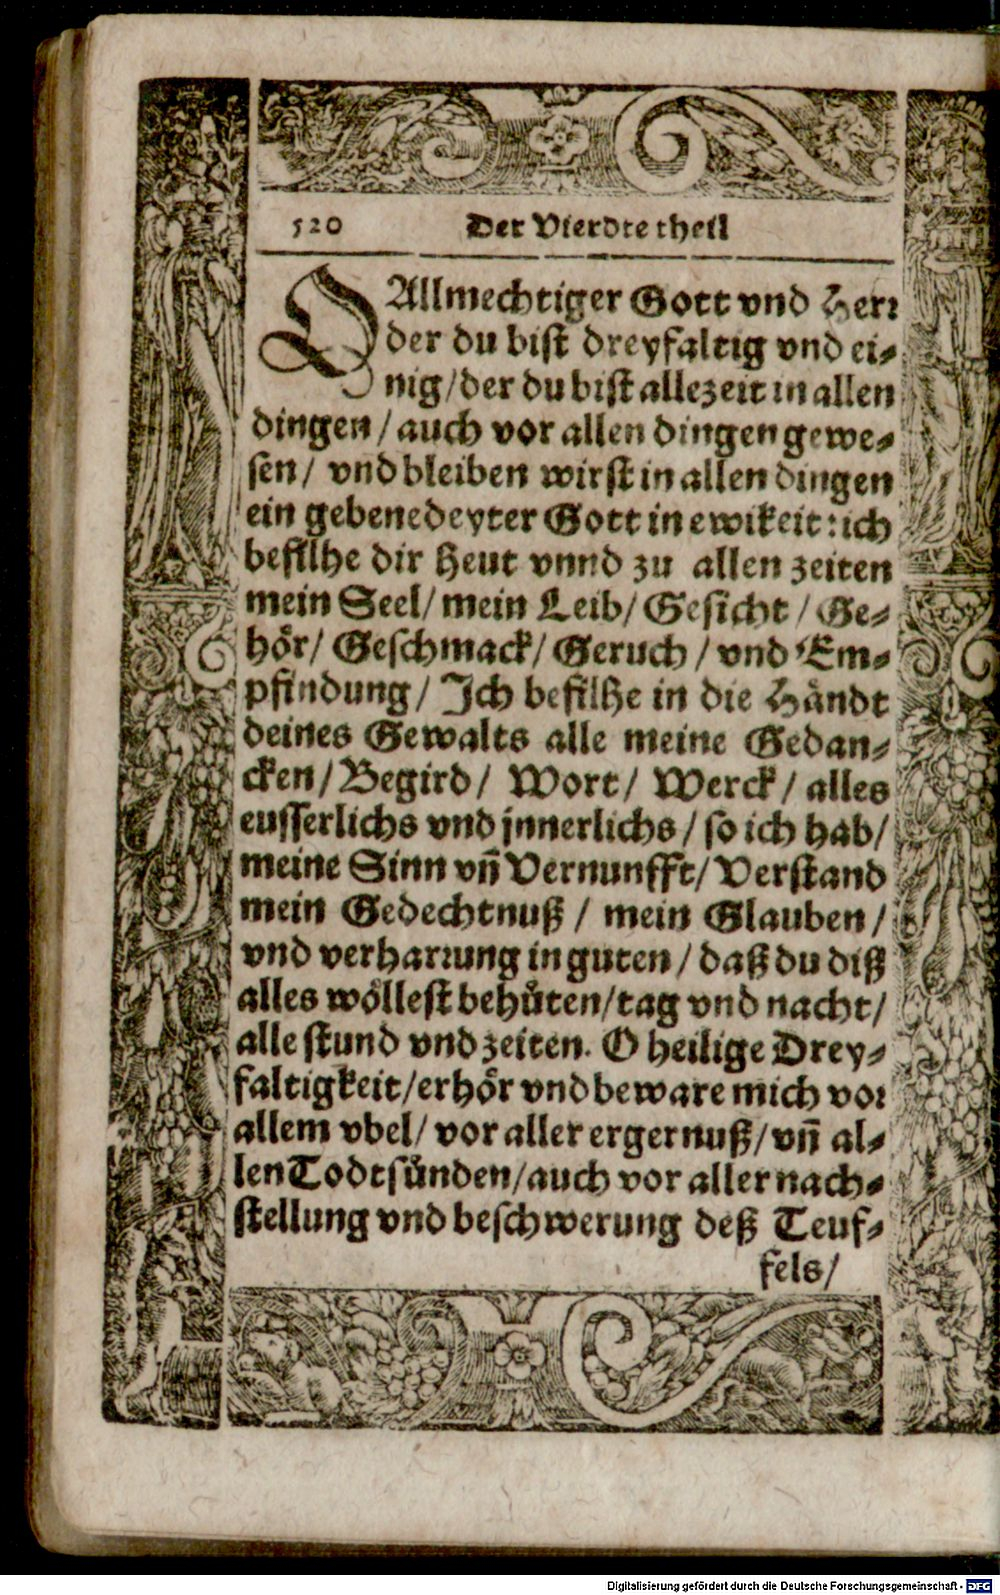 520 Der Vierdte theil
O Allmechtiger Gott vnd Herr
der du bist dreyfaltig vnd ei-
nig/der du bist allezeit in allen
dingen/auch vor allen dingen gewe-
sen/ vnd bleiben wirst in allen dingen
ein gebenedeyter Gott in ewikeit: ich
befilhe dir Heut vnnd zu allen zeiten
mein Seel/ mein Leib/ Gesicht/ Ge-
hör/ Geschmack/ Geruch/ vnd Em-
pfindung/ Jch befilhe in die Händt
deines Gewalts alle meine Gedan-
cken/ Begird/ Wort/ Werck/ alles
eusserlichs vnd jnnerlichs/ so ich hab/
meine Sinn vñ Vernunfft/ Verstand
mein Gedechtnuß/ mein Glauben/
vnd verharrung in guten/ daß du diß
alles wöllest behůten/tag vnd nacht/
alle stund vnd zeiten. O heilige Drey-
faltigkeit/erhör vnd beware mich vor
allem vbel/ vor aller ergernuß/vñ al-
len Todtsünden/auch vor aller nach-
stellung vnd beschwerung deß Teuf-
fels/
Digitalisierung gefördert durch die Deutsche Forschungsgemeinschaft - DFG